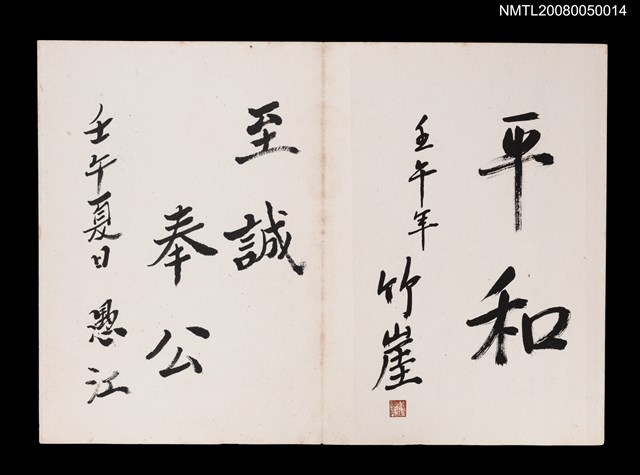 NMTL20080050014
平和
壬午年 竹崖
至誠
奉公
壬午夏日 愚江